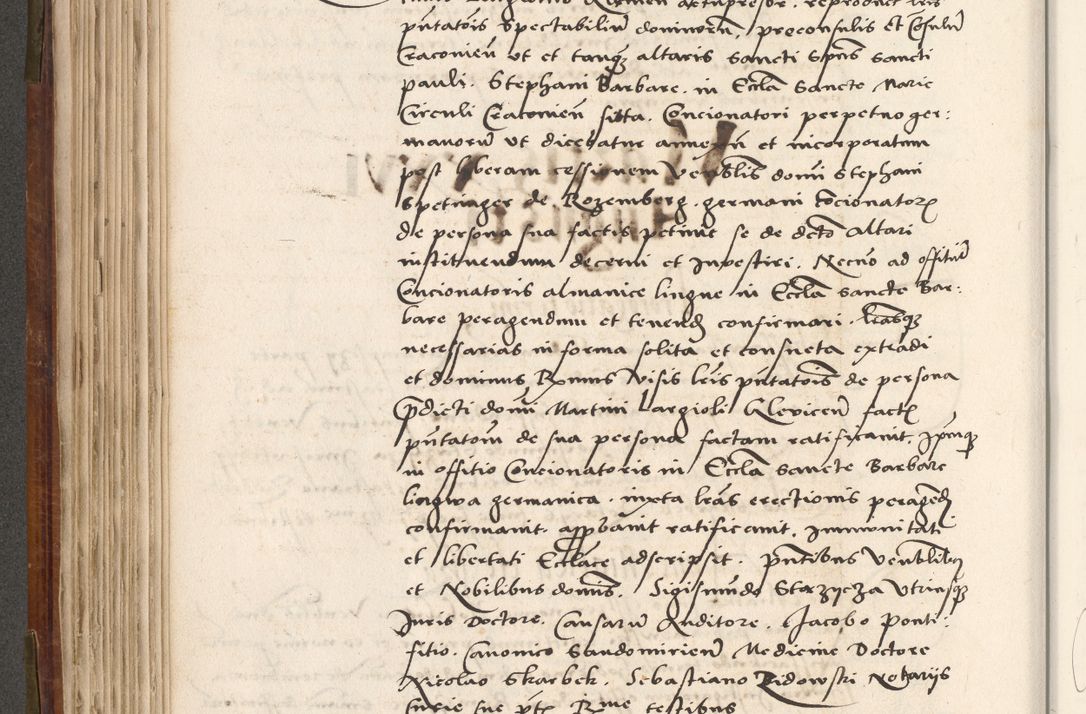 pñtatõis Spectabiliũ dominorũ, preconsulis Et Cõsulũ
Cracovieñ ut et tanq̃ altaris sancti Spũs sancti
pauli. Stephani Barbare. in Eccl̃a Sancte Marie
Circuli Cracovieñ sitta. Concionatori perpetuo ger:
manorũ ut dicebatur annexũ et incorporatum
post liberam cessionem Ven̄blis domi Stephani
Spetinger de Rozemberg. germani Cõcionatoris
de persona sua factis petiuit se de dcto Altari
instituendum decerni et Inuestiri. Necnõ ad offitiũ
Concionatoris almanice lingue in Eccl̃a sancte Bar:
bare peragendum et tenend̃ confirmari. lr̃asq̃
necessarias in forma solita et consueta extradi
et dominus Rx̃mus visis lr̃is pñtatõis de persona
p̃dicti domi Martini Largioli Clericeñ fact̃
pñtatom̃ de sua persona factam ratificauit. Ip̃mq̃
in offitio Concionatoris in Eccl̃a sancte Barbare
lingwa germanica. iuxta lr̃as erectionis peragend̃
confirmauit. approbauit ratificauit. Immunitati
et libertati Eccl̃ace adscripsit. Pñtibus Ven̄blibus
et Nobilibus domĩs. Sigismũdo Starzycza Utriusq̃
Juris Doctore. Causarũ Auditore. Jacobo Ponti:
fitio. Canonico Sandomirieñ Medicine Doctore
Nicolao Skarbek. Sebastiano Zidowski Notariis
curie sue pt̃e Rme testibus